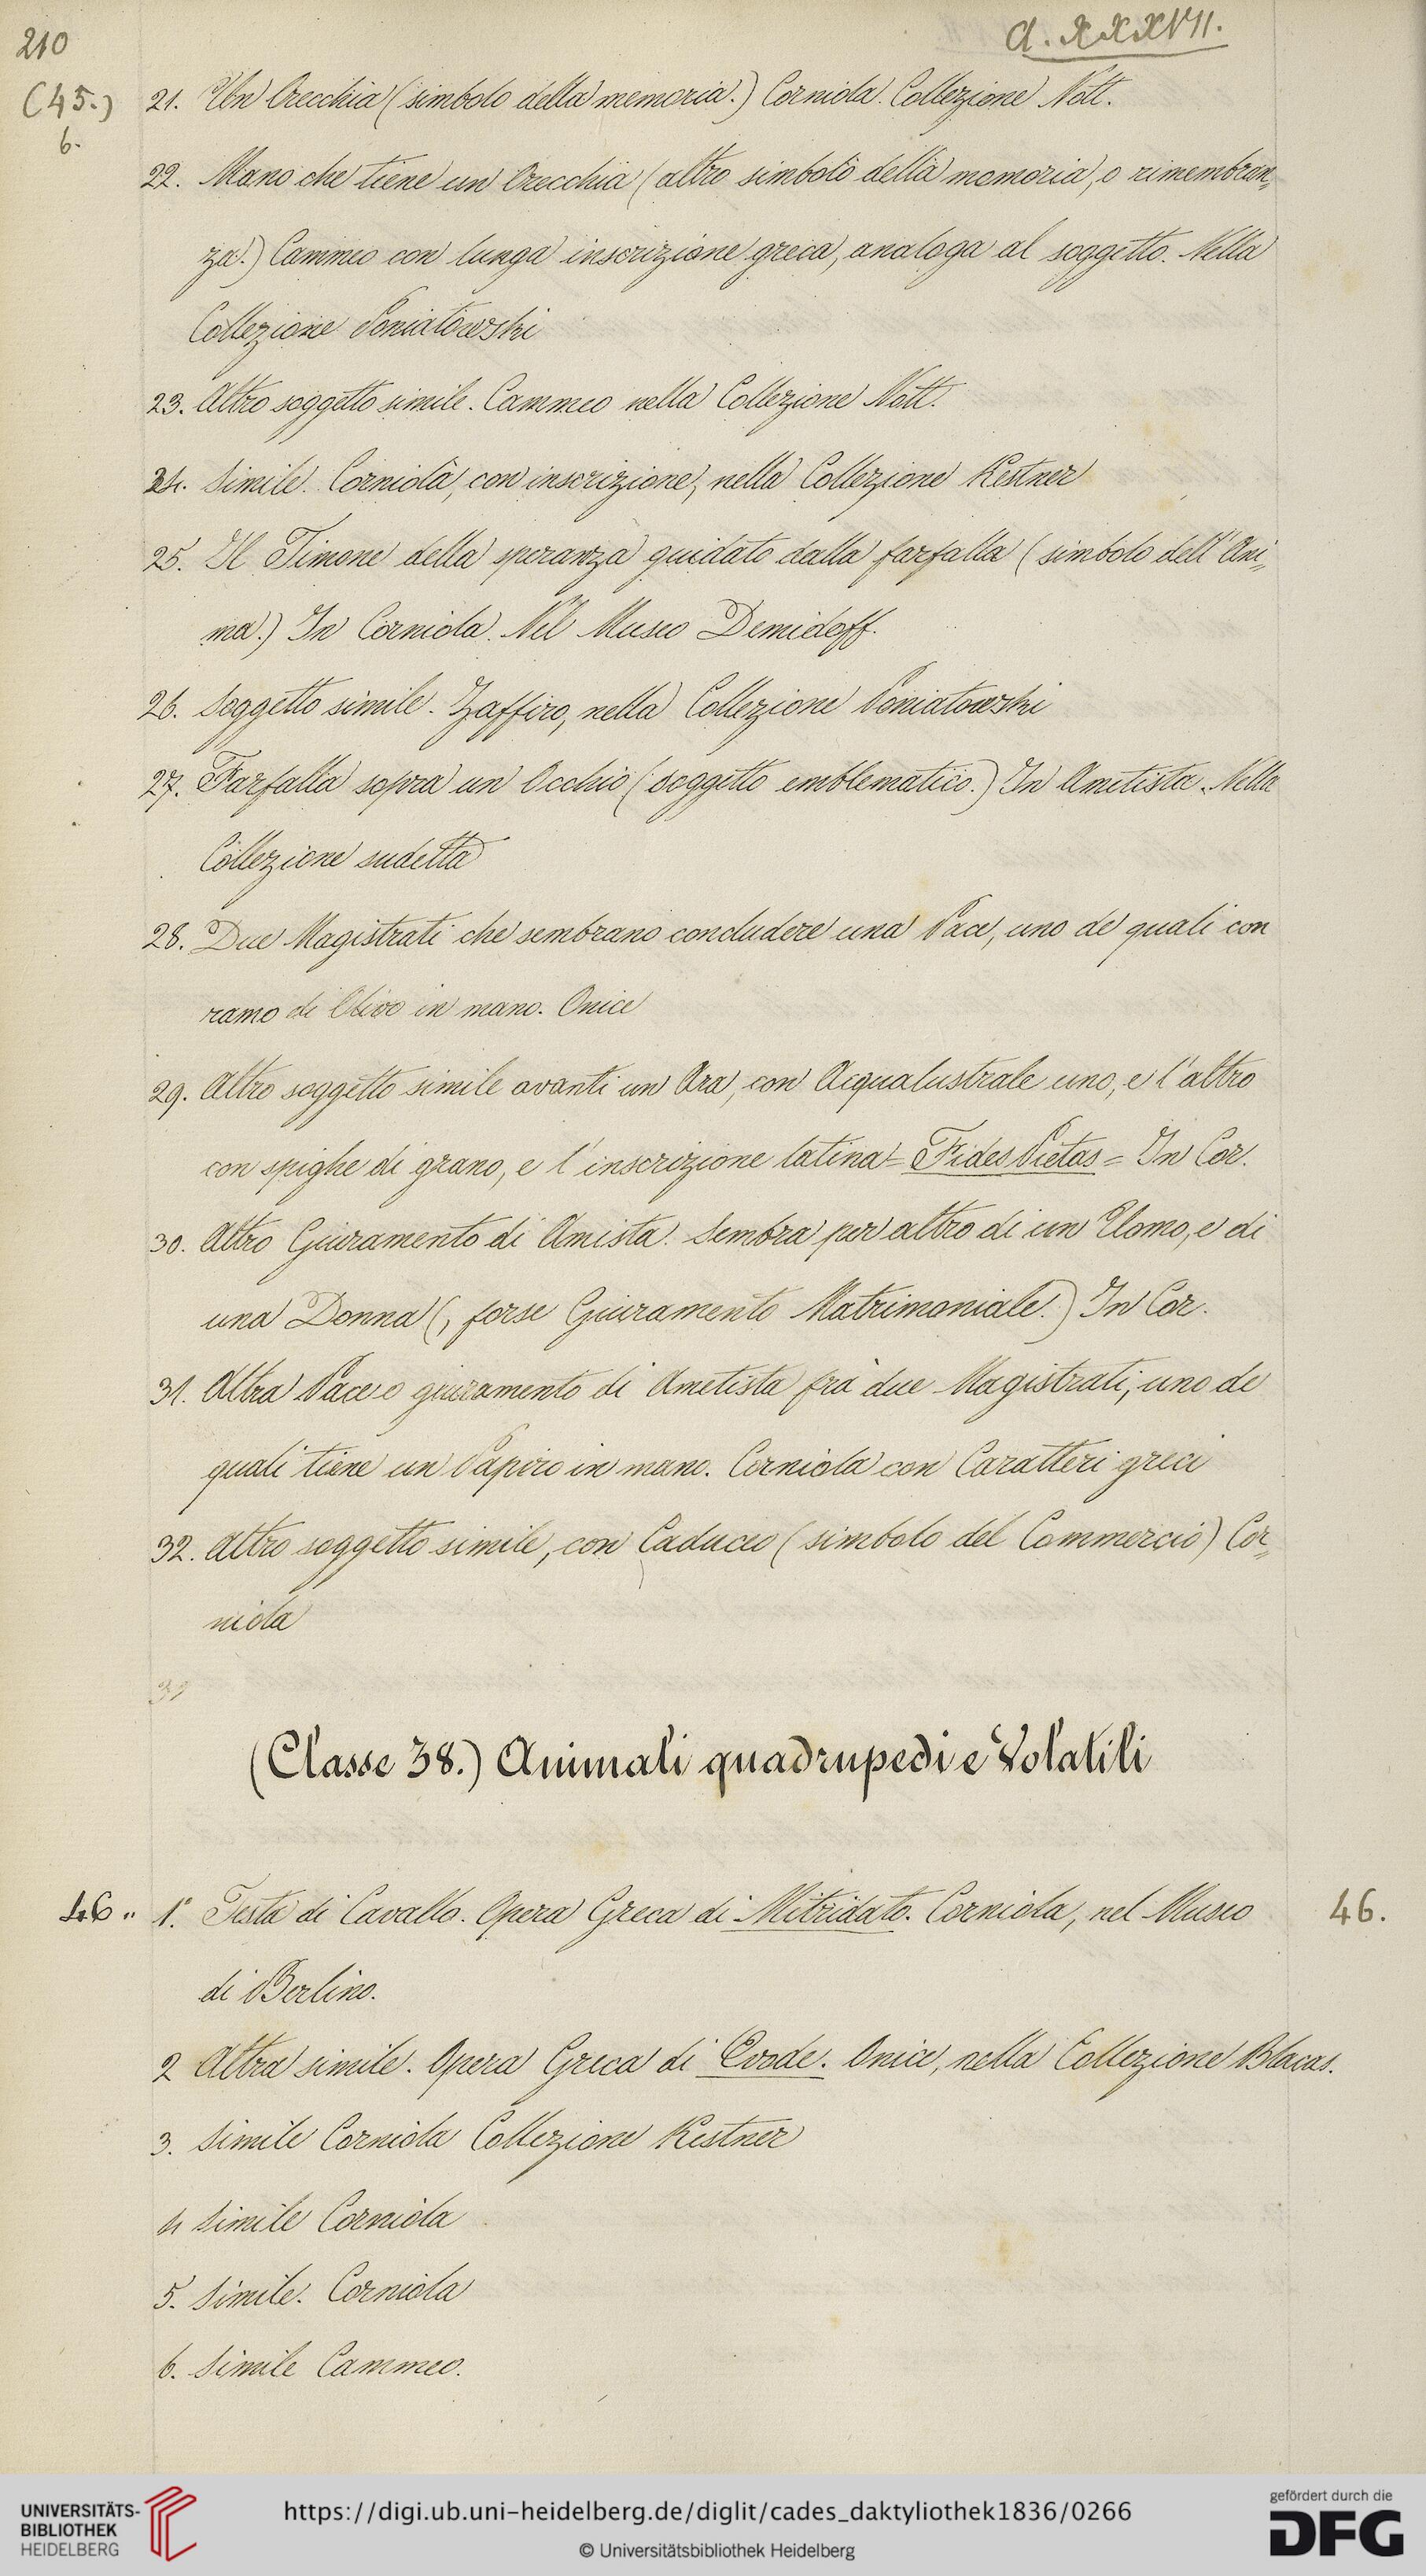 210
Cl. XXXVII.
(45.)
6.
21. Un Orecchia (simbolo della memoria.) Corniola. Collezione Nott.
22. Mano che tiene un Orecchia (altro simbolo della memoria, o rimembran„
za.) Cammeo con lunga inscrizione greca, analoga al soggetto. Nella
Collezione Poniatowski
23. Altro soggetto simile. Cammeo nella Collezione Nott.
24. Simile. Corniola, con inscrizione, nella Collezione Kestner
25. Il Timone della speranza guidato dalla farfalla (simbolo dell'Ani„
ma.) In Corniola. Nel Museo Demidoff.
26. Soggetto simile. Zaffiro, nella Collezione Poniatowski
27. Farfalla sopra un Occhio (soggetto emblematico.) In Ametista. Nella
Collezione sudetta
28. Due Magistrati che sembrano concludere una Pace, uno de quali con
ramo di Olivo in mano. Onice
29. Altro soggetto simile avanti un Ara, con Acqualustrale uno, e l'altro
con spighe di grano, e l'inscrizione latina = Fides Pietas = In Cor.
30. Altro Giuramento di Amista. Sembra per altro di un Uomo, e di
una Donna (, forse Giuramento Matrimoniale.) In Cor.
31. Altra Pace o giuramento di Ametista frà due Magistrati, uno de
quali tiene un Papiro in mano. Corniola con Caratteri greci
32. Altro soggetto simile, con Caduceo (simbolo del Commercio) Cor„
niola
(Classe 38.) Animali quadrupedi e Volatili
46.. 1.° Testa di Cavallo. Opera Greca di Mitridato. Corniola, nel Museo 46.
di Berlino.
2 Altra simile. Opera Greca di Evode. Onice, nella Collezione Blacas.
3. Simile Corniola Collezione Kestner
4 Simile Corniola
5. Simile. Corniola
6. Simile Cammeo.
UNIVERSITÄTS-
BIBLIOTHEK
HEIDELBERG
https://digi.ub.uni-heidelberg.de/diglit/cades_daktyliothek1836/0266
© Universitätsbibliothek Heidelberg
gefördert durch die
DFG